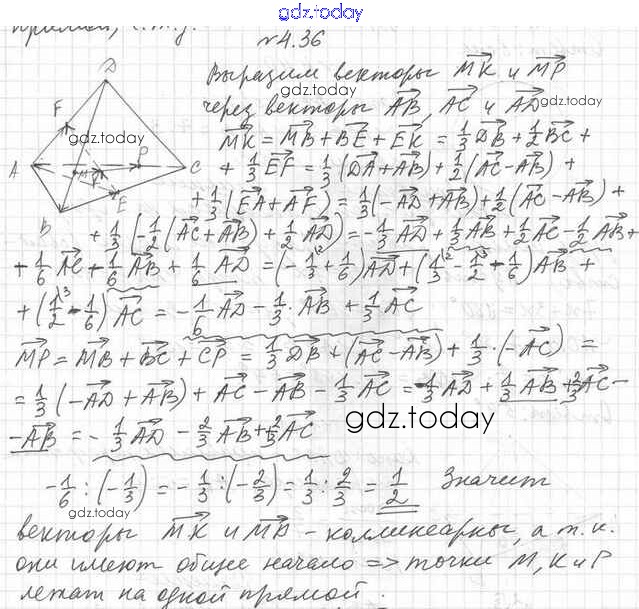 gdz.today
№4.36
Выразим векторы MK и MP
через векторы AB, AC и AD
gdz.today
MK = MB + BE + EK = 1/3 DB + 1/2 BC +
+ 1/3 EF = 1/3 (DA + AB) + 1/2 (AC - AB) +
+ 1/3 (EA + AF) = 1/3 (-AD + AB) + 1/2 (AC - AB) +
+ 1/3 (-1/2 (AC + AB) + 1/2 AD) = -1/3 AD + 1/3 AB + 1/2 AC - 1/2 AB +
+ 1/6 AC - 1/6 AB + 1/6 AD = (-1/3 + 1/6) AD + (1/3 - 1/2 - 1/6) AB +
+ (1/2 - 1/6) AC = -1/6 AD - 1/3 · AB + 1/3 AC
MP = MB + BC + CP = 1/3 DB + (AC - AB) + 1/3 · (-AC) =
= 1/3 (-AD + AB) + AC - AB - 1/3 AC = -1/3 AD + 1/3 AB + 2/3 AC -
- AB = -1/3 AD - 2/3 AB + 2/3 AC
gdz.today
-1/6 : (-1/3) = -1/3 : (-2/3) = 1/3 : 2/3 = 1/2 Значит
векторы MK и MA - коллинеарны, а т.к.
они имеют общее начало => точки M, K и P
лежат на одной прямой.
D
F
gdz.today
A
M
P
C
E
B
gdz.today
gdz.today